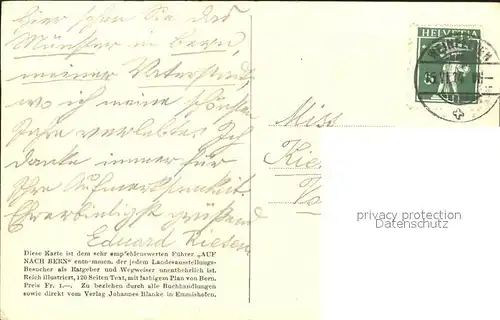 Hier sehen Sie das
Münster in Bern,
meiner Vaterstadt,
wo ich meine schönsten
Jahre verlebte. Ich
danke immer für
Ihre Aufmerksamkeit.
Ehrerbietigst grüssend
Eduard Riesen
Diese Karte ist dem sehr empfehlenswerten Führer „AUF
NACH BERN" entnommen, der jedem Landesausstellungs-
Besucher als Ratgeber und Wegweiser unentbehrlich ist.
Reich illustriert, 120 Seiten Text, mit farbigem Plan von Bern.
Preis Fr. 1.—. Zu beziehen durch alle Buchhandlungen
sowie direkt vom Verlag Johannes Blanke in Emmishofen.
HELVETIA
Miss
privacy protection
datenschutz